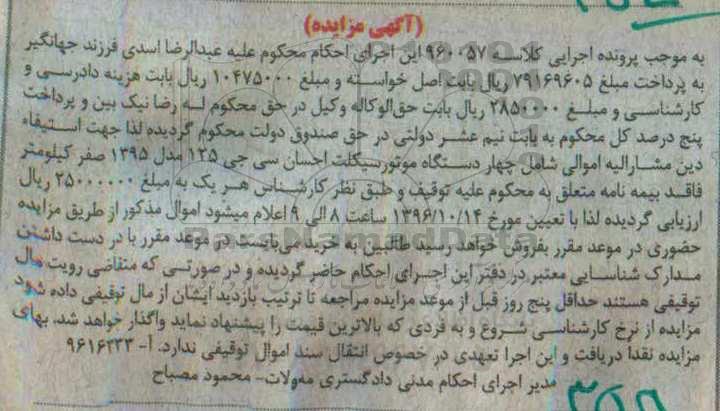 (آگهی مزایده)
به موجب پرونده اجرایی کلاسه ۹۶۰۰۵۷ این اجرای احکام محکوم علیه عبدالرضا اسدی فرزند جهانگیر
به پرداخت مبلغ ۷۹۱۶۹۶۰۵ ریال بابت اصل خواسته و مبلغ ۱۰۴۷۵۰۰۰ ریال بابت هزینه دادرسی و
کارشناسی و مبلغ ۲۸۵۰۰۰۰ ریال بابت حق‌الوکاله وکیل در حق محکوم له رضا نیک بین و پرداخت
پنج درصد کل محکوم به بابت نیم عشر دولتی در حق صندوق دولت محکوم گردیده لذا جهت استیفاء
دین مشارالیه اموالی شامل چهار دستگاه موتورسیکلت احسان سی جی ۱۲۵ مدل ۱۳۹۵ صفر کیلومتر
فاقد بیمه نامه متعلق به محکوم علیه توقیف و طبق نظر کارشناس هر یک به مبلغ ۲۵۰۰۰۰۰۰ ریال
ارزیابی گردیده لذا با تعیین مورخ ۱۳۹۶/۱۰/۱۴ ساعت ۸ الی ۹ اعلام میشود اموال مذکور از طریق مزایده
حضوری در موعد مقرر بفروش خواهد رسید طالبین به خرید می‌بایست در موعد مقرر با در دست داشتن
مدارک شناسایی معتبر در دفتر این اجرای احکام حاضر گردیده و در صورتی که متقاضی رویت مال
توقیفی هستند حداقل پنج روز قبل از موعد مزایده مراجعه تا ترتیب بازدید ایشان از مال توقیفی داده شود
مزایده از نرخ کارشناسی شروع و به فردی که بالاترین قیمت را پیشنهاد نماید واگذار خواهد شد، بهای
مزایده نقداً دریافت و این اجرا تعهدی در خصوص انتقال سند اموال توقیفی ندارد. آ- ۹۶۱۶۲۳۳
مدیر اجرای احکام مدنی دادگستری مه‌ولات- محمود مصباح